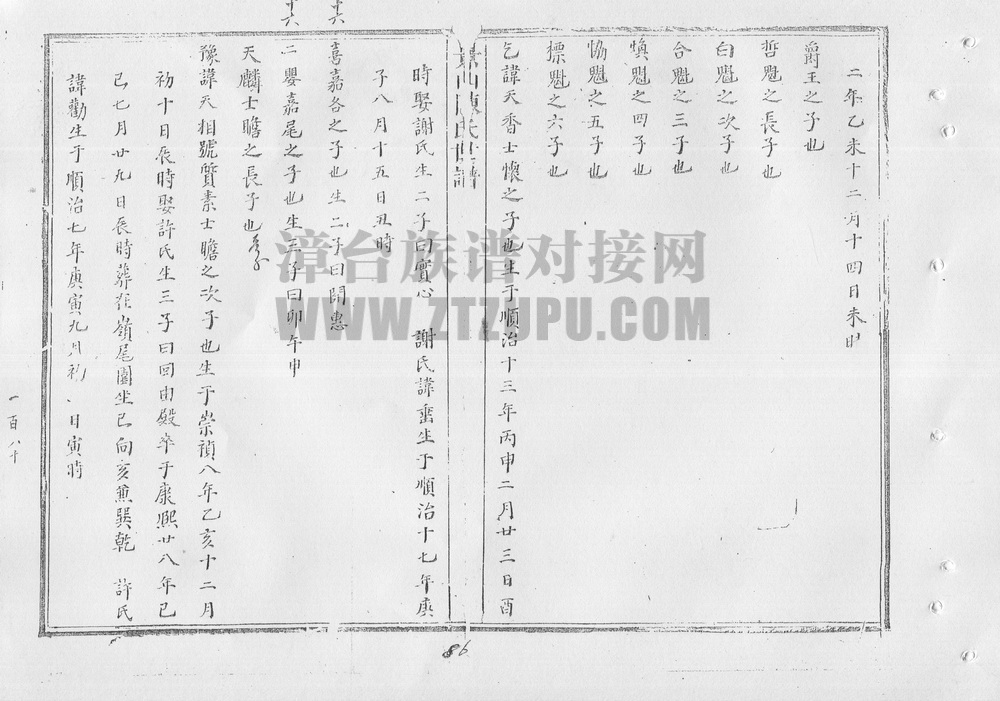 二年乙未十二月十四日未時
爵王之子也
哲魁之長子也
白魁之次子也
合魁之三子也
慎魁之四子也
恊魁之五子也
標魁之六子也
乞諱天香士懷之子也生于順治十三年丙申二月廿三日酉
陳氏世譜
時娶謝氏生二子曰實心 謝氏諱垂生于順治十七年庚
子八月十五日丑時
十六
喜嘉各之子也生二子曰閗惠
十六
二嬰嘉尾之子也生三子曰卯午申
天麟士瞻之長子也
豫諱天相號質素士瞻之次子也生于崇禎八年乙亥十二月
初十日辰時娶許氏生三子曰回由殿卒于康熙廿八年己
巳七月廿九日辰時葬在嶺尾園坐巳向亥兼巽乾 許氏
諱勸生于順治七年庚寅九月初 日寅時
一百八十
86
漳台族谱对接网
WWW.ZTZUPU.COM